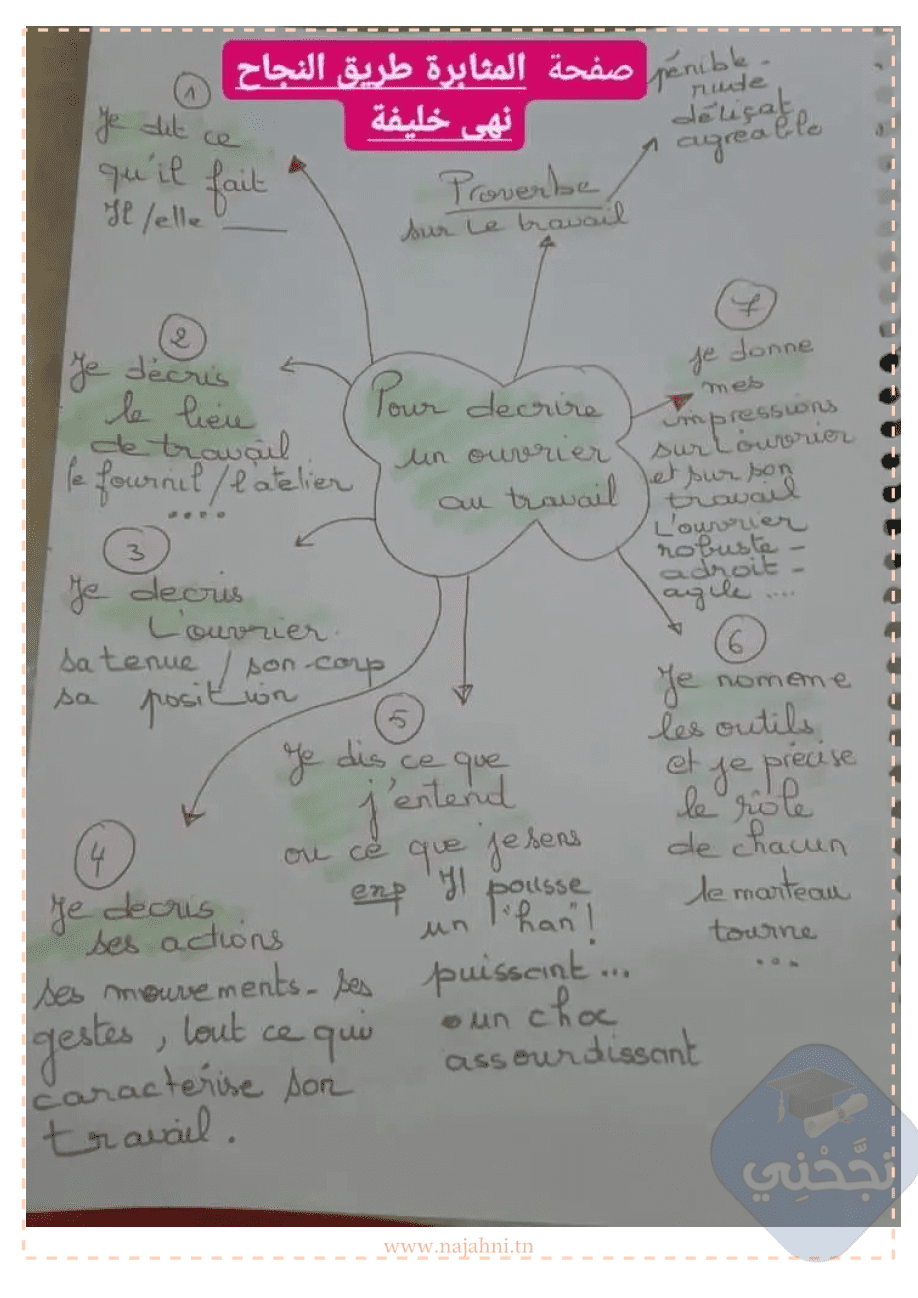 صفحة المثابرة طريق النجاح
نهى خليفة
1
Je dit ce
qu'il fait
Il/elle ____
Proverbe
sur le travail
pénible -
rude
délicat
agréable
2
Je décris
le lieu
de travail
le fournil/l'atelier
....
Pour decrire
un ouvrier
au travail
7
je donne
mes
impressions
sur l'ouvrier
et sur son
travail
L'ouvrier
robuste -
adroit -
agile ....
3
Je decris
L'ouvrier.
sa tenue / son corp
sa position
4
Je decris
ses actions
ses mouvements - ses
gestes, tout ce qui
caractérise son
travail.
5
Je dis ce que
j'entend
ou ce que je sens
exp "Il pousse
un "han"!
puissant...
• un choc
assourdissant
6
Je nomeme
les outils
et je précise
le rôle
de chacun
le marteau
tourne
...
نَجَّحْنِي
www.najahni.tn